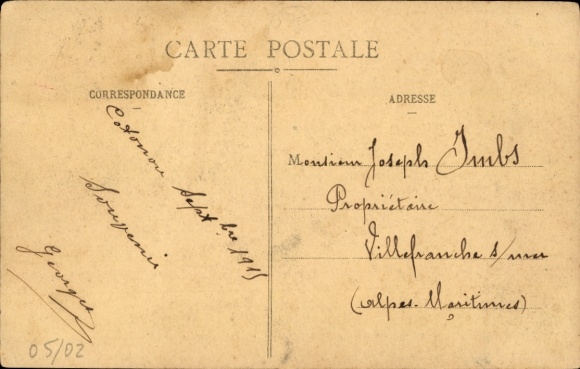 CARTE POSTALE
CORRESPONDANCE
Cotonou Septbre 1915
Souvenir
Georges
05/02
ADRESSE
Monsieur Joseph Imbs
Propriétaire
Villefranche s/mer
(Alpes-Maritimes)